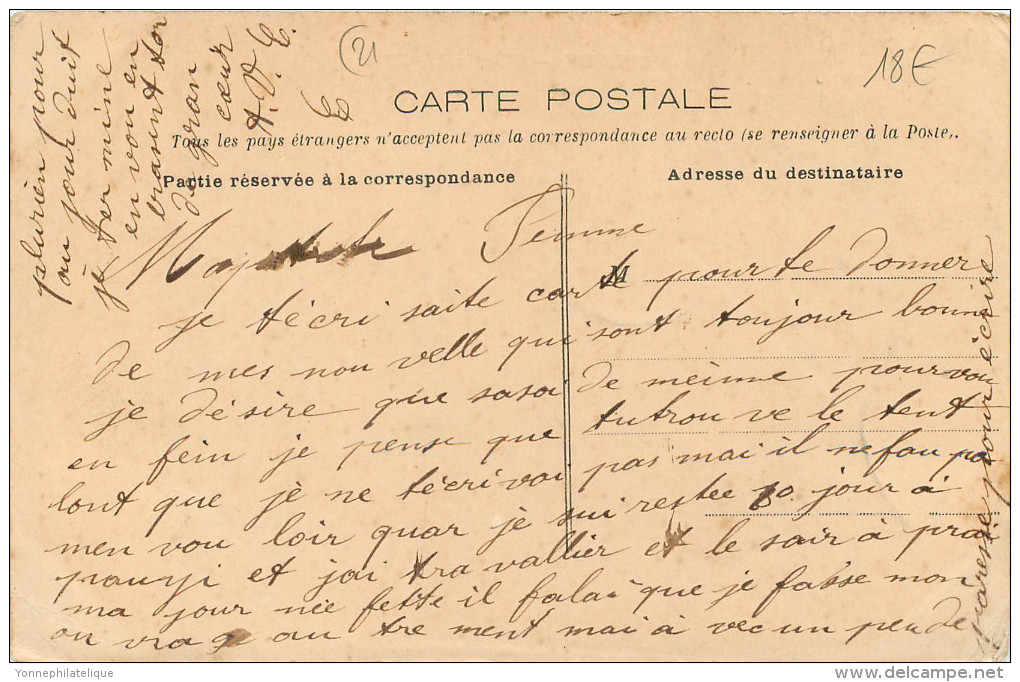 (21
18€
CARTE POSTALE
Tous les pays étrangers n'acceptent pas la correspondance au recto (se renseigner à la Poste).
Partie réservée à la correspondance
Adresse du destinataire
M
Femme
je técri saite carte pour te donnere
de mes nou velle qui sont toujour bonne
je désire que sasoi de meinme pour vou
en fein je pense que tutrou ve le tent
lont que je ne técrivai pas mai il ne fau pa
men vou loir quar je sui restee 10 jour à
et jai tra vallier et le soir à prai
ma jour neé fette il falai que je fasse mon
ou vra g au tre ment mai à vec un peu de
paresse pour écrire
plurien pour
au jour duit
je ter mine
en von en
brasant tor
de gran
cœur
A. V. E.
E
Yonnephilatelique
delcampe.net